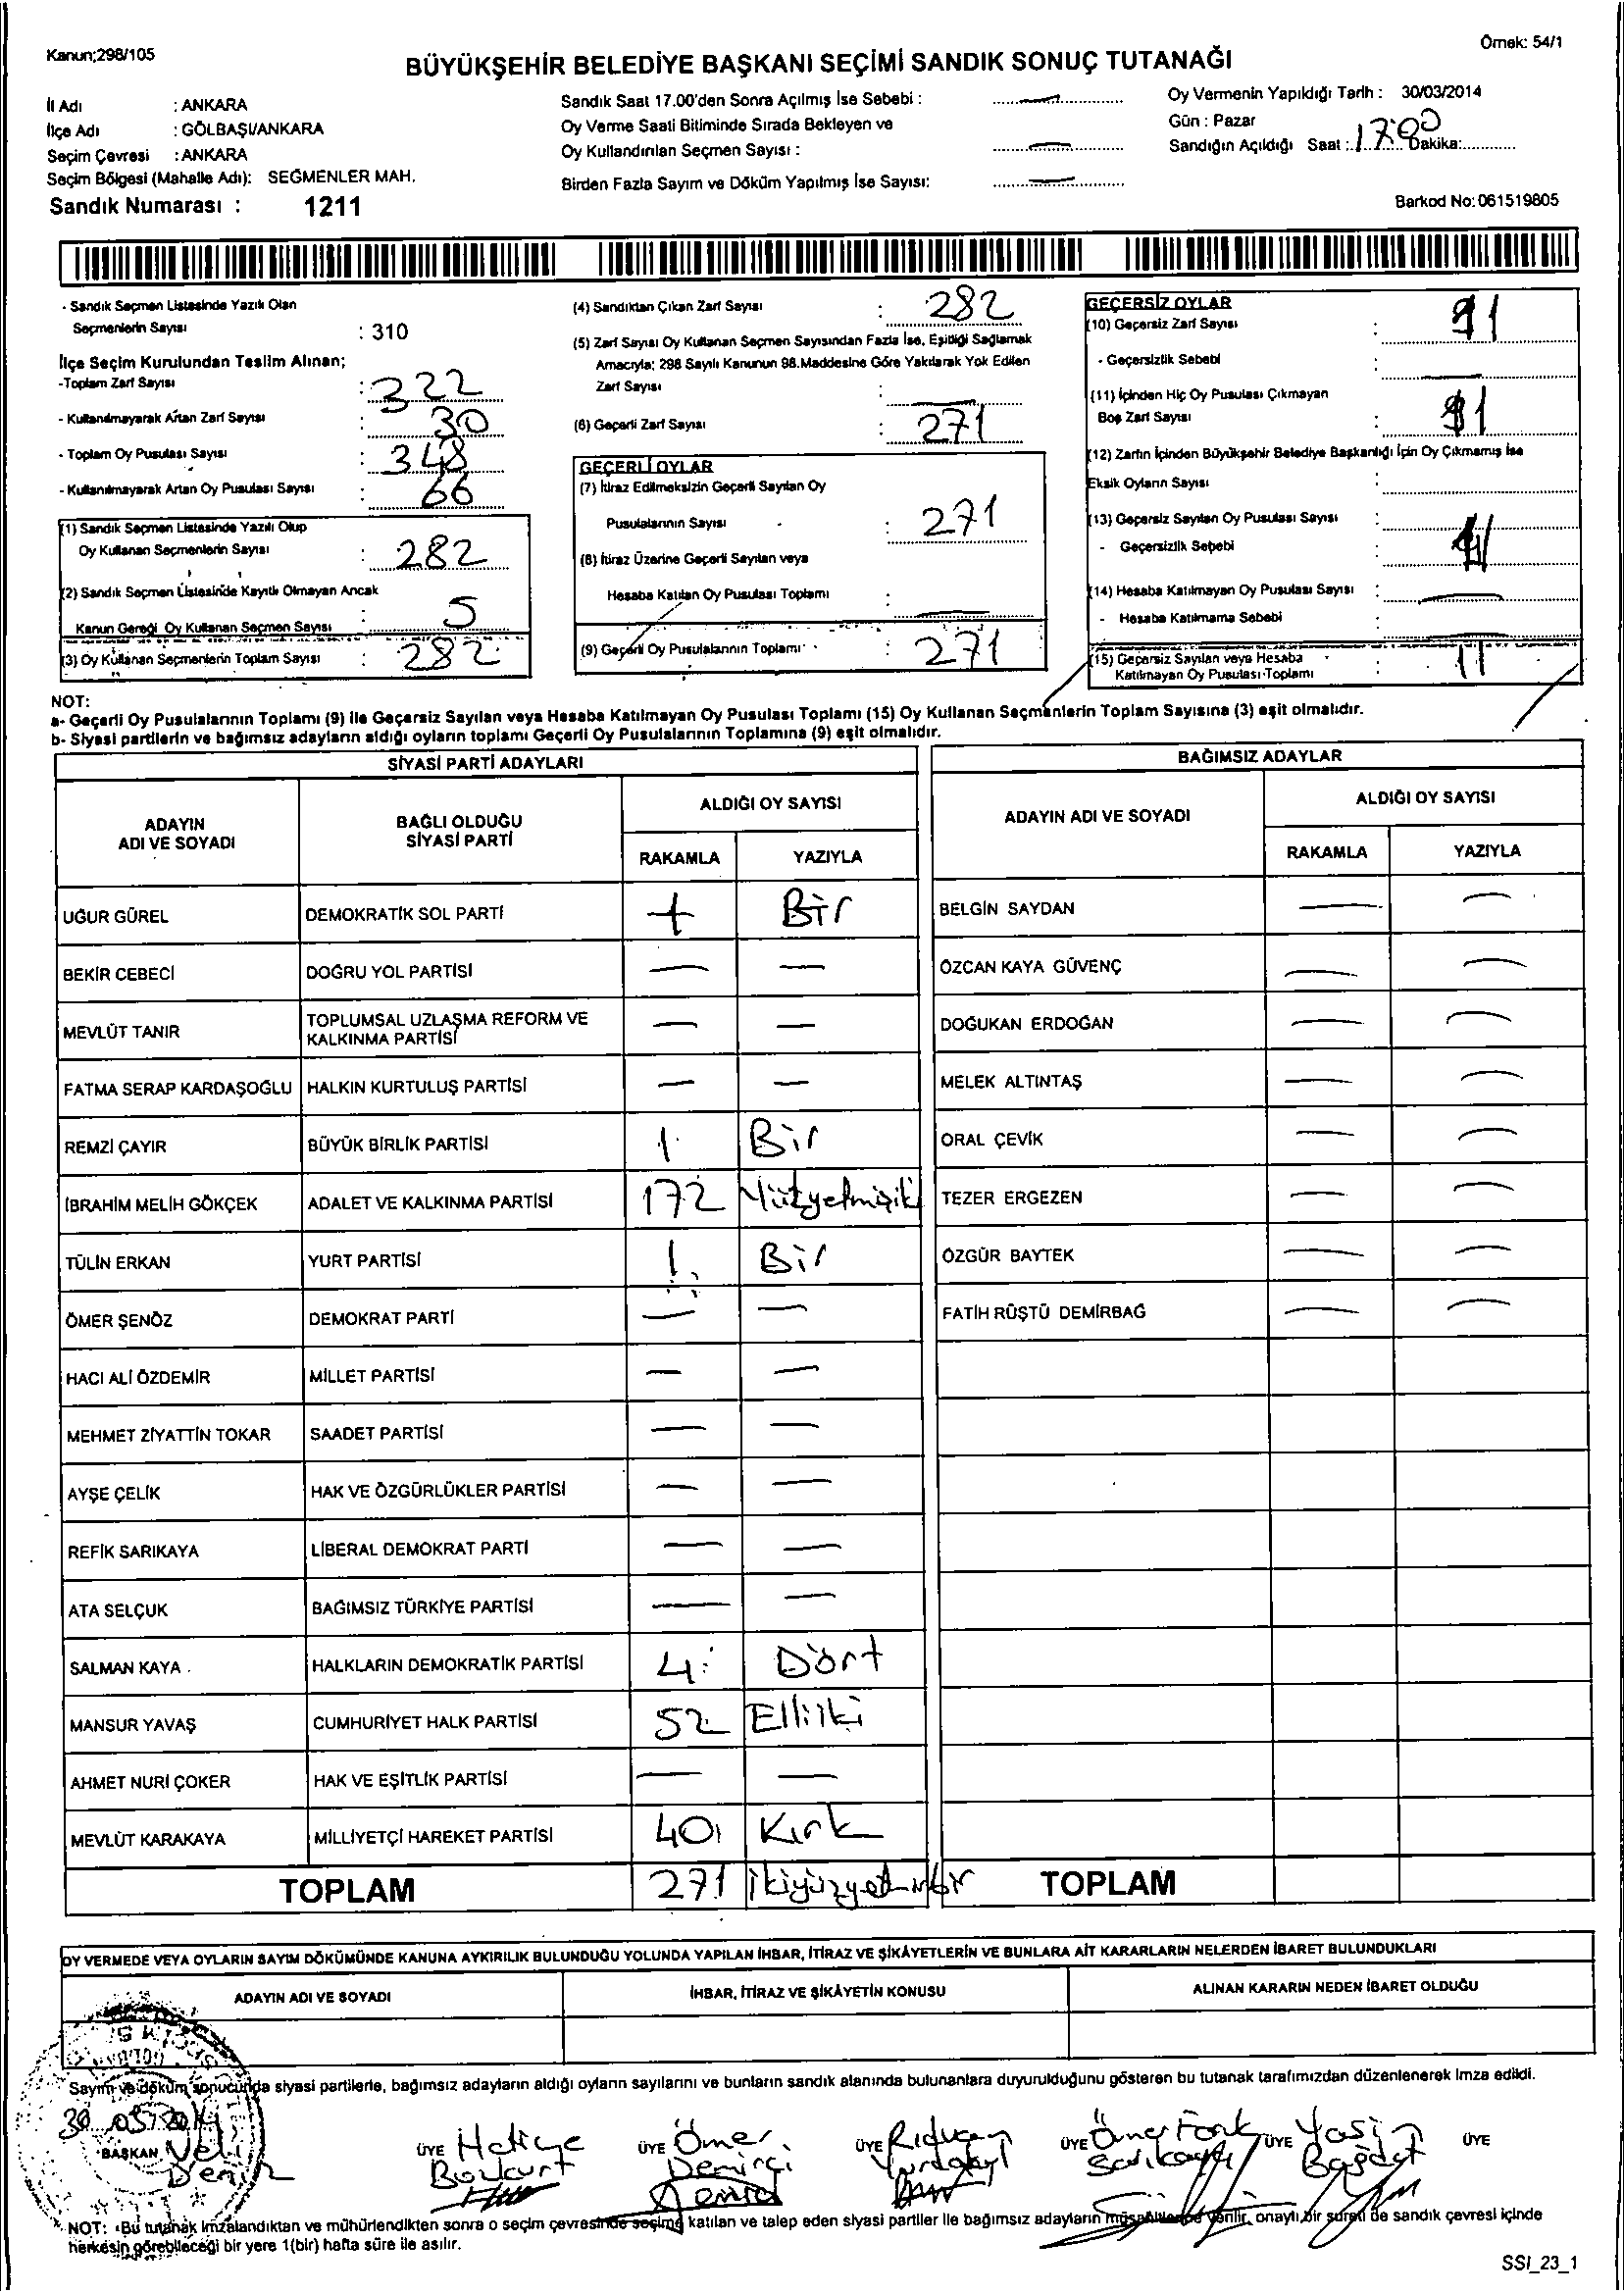 Kanun;298/105
Örnek: 54/1
BÜYÜKŞEHİR BELEDİYE BAŞKANI SEÇİMİ SANDIK SONUÇ TUTANAĞI
İl Adı : ANKARA
İlçe Adı : GÖLBAŞI/ANKARA
Seçim Çevresi : ANKARA
Seçim Bölgesi (Mahalle Adı): SEĞMENLER MAH.
Sandık Numarası : 1211
Sandık Saat 17.00'den Sonra Açılmış İse Sebebi : —
Oy Verme Saati Bitiminde Sırada Bekleyen ve
Oy Kullandırılan Seçmen Sayısı : —
Birden Fazla Sayım ve Döküm Yapılmış İse Sayısı: —
Oy Vermenin Yapıldığı Tarih : 30/03/2014
Gün : Pazar
Sandığın Açıldığı Saat : 17:00 Dakika:
Barkod No: 061519805
- Sandık Seçmen Listesinde Yazılı Olan
Seçmenlerin Sayısı : 310
İlçe Seçim Kurulundan Teslim Alınan;
-Toplam Zarf Sayısı : 322
- Kullanılmayarak Artan Zarf Sayısı : 30
- Toplam Oy Pusulası Sayısı : 348
- Kullanılmayarak Artan Oy Pusulası Sayısı : 66
(1) Sandık Seçmen Listesinde Yazılı Olup
Oy Kullanan Seçmenlerin Sayısı : 282
(2) Sandık Seçmen Listesinde Kayıtlı Olmayan Ancak
Kanun Gereği Oy Kullanan Seçmen Sayısı 5
(3) Oy Kullanan Seçmenlerin Toplam Sayısı : 282
(4) Sandıktan Çıkan Zarf Sayısı : 282
(5) Zarf Sayısı Oy Kullanan Seçmen Sayısından Fazla İse, Eşitliği Sağlamak
Amacıyla; 298 Sayılı Kanunun 98.Maddesine Göre Yakılarak Yok Edilen
Zarf Sayısı : —
(6) Geçerli Zarf Sayısı : 271
GEÇERLİ OYLAR
(7) İtiraz Edilmeksizin Geçerli Sayılan Oy
Pusulalarının Sayısı : 271
(8) İtiraz Üzerine Geçerli Sayılan veya
Hesaba Katılan Oy Pusulası Toplamı : —
(9) Geçerli Oy Pusulalarının Toplamı : 271
GEÇERSİZ OYLAR
(10) Geçersiz Zarf Sayısı :
- Geçersizlik Sebebi : —
(11) İçinden Hiç Oy Pusulası Çıkmayan
Boş Zarf Sayısı :
(12) Zarfın İçinden Büyükşehir Belediye Başkanlığı İçin Oy Çıkmamış İse
Eksik Oyların Sayısı :
(13) Geçersiz Sayılan Oy Pusulası Sayısı :
- Geçersizlik Sebebi :
(14) Hesaba Katılmayan Oy Pusulası Sayısı : —
- Hesaba Katılmama Sebebi : —
(15) Geçersiz Sayılan veya Hesaba
Katılmayan Oy Pusulası Toplamı : 11
NOT:
a- Geçerli Oy Pusulalarının Toplamı (9) ile Geçersiz Sayılan veya Hesaba Katılmayan Oy Pusulası Toplamı (15) Oy Kullanan Seçmenlerin Toplam Sayısına (3) eşit olmalıdır.
b- Siyasi partilerin ve bağımsız adayların aldığı oyların toplamı Geçerli Oy Pusulalarının Toplamına (9) eşit olmalıdır.
SİYASİ PARTİ ADAYLARI
ADAYIN ADI VE SOYADI
BAĞLI OLDUĞU SİYASİ PARTİ
ALDIĞI OY SAYISI
RAKAMLA YAZIYLA
UĞUR GÜREL DEMOKRATİK SOL PARTİ 1 Bir
BEKİR CEBECİ DOĞRU YOL PARTİSİ — —
MEVLÜT TANIR TOPLUMSAL UZLAŞMA REFORM VE KALKINMA PARTİSİ — —
FATMA SERAP KARDAŞOĞLU HALKIN KURTULUŞ PARTİSİ — —
REMZİ ÇAYIR BÜYÜK BİRLİK PARTİSİ 1 Bir
İBRAHİM MELİH GÖKÇEK ADALET VE KALKINMA PARTİSİ 172 Yüzyetmişiki
TÜLİN ERKAN YURT PARTİSİ 1 Bir
ÖMER ŞENÖZ DEMOKRAT PARTİ — —
HACI ALİ ÖZDEMİR MİLLET PARTİSİ — —
MEHMET ZİYATTİN TOKAR SAADET PARTİSİ — —
AYŞE ÇELİK HAK VE ÖZGÜRLÜKLER PARTİSİ — —
REFİK SARIKAYA LİBERAL DEMOKRAT PARTİ — —
ATA SELÇUK BAĞIMSIZ TÜRKİYE PARTİSİ — —
SALMAN KAYA HALKLARIN DEMOKRATİK PARTİSİ 4 Dört
MANSUR YAVAŞ CUMHURİYET HALK PARTİSİ 52 Elliiki
AHMET NURİ ÇOKER HAK VE EŞİTLİK PARTİSİ — —
MEVLÜT KARAKAYA MİLLİYETÇİ HAREKET PARTİSİ 40 Kırk
TOPLAM 271 ikiyüzyetmişbir
BAĞIMSIZ ADAYLAR
ADAYIN ADI VE SOYADI
ALDIĞI OY SAYISI
RAKAMLA YAZIYLA
BELGİN SAYDAN — —
ÖZCAN KAYA GÜVENÇ — —
DOĞUKAN ERDOĞAN — —
MELEK ALTINTAŞ — —
ORAL ÇEVİK — —
TEZER ERGEZEN — —
ÖZGÜR BAYTEK — —
FATİH RÜŞTÜ DEMİRBAĞ — —
TOPLAM
OY VERMEDE VEYA OYLARIN SAYIM DÖKÜMÜNDE KANUNA AYKIRILIK BULUNDUĞU YOLUNDA YAPILAN İHBAR, İTİRAZ VE ŞİKÂYETLERİN VE BUNLARA AİT KARARLARIN NELERDEN İBARET BULUNDUKLARI
ADAYIN ADI VE SOYADI
İHBAR, İTİRAZ VE ŞİKÂYETİN KONUSU
ALINAN KARARIN NEDEN İBARET OLDUĞU
Sayım ve döküm sonucunda siyasi partilerle, bağımsız adayların aldığı oyların sayılarını ve bunların sandık alanında bulunanlara duyurulduğunu gösteren bu tutanak tarafımızdan düzenlenerek imza edildi.
30.03.2014
BAŞKAN Veli
ÜYE Hatice Bozkurt
ÜYE Ömer Demirci
ÜYE Rıdvan
ÜYE Ömer Sarıkaya
ÜYE Yasin
ÜYE
NOT: Bu tutanak imzalandıktan ve mühürlendikten sonra o seçim çevresinde seçime katılan ve talep eden siyasi partiler ile bağımsız adayların müşahitlerine verilir, onaylı bir sureti de sandık çevresi içinde
herkesin görebileceği bir yere 1(bir) hafta süre ile asılır.
SSI_23_1